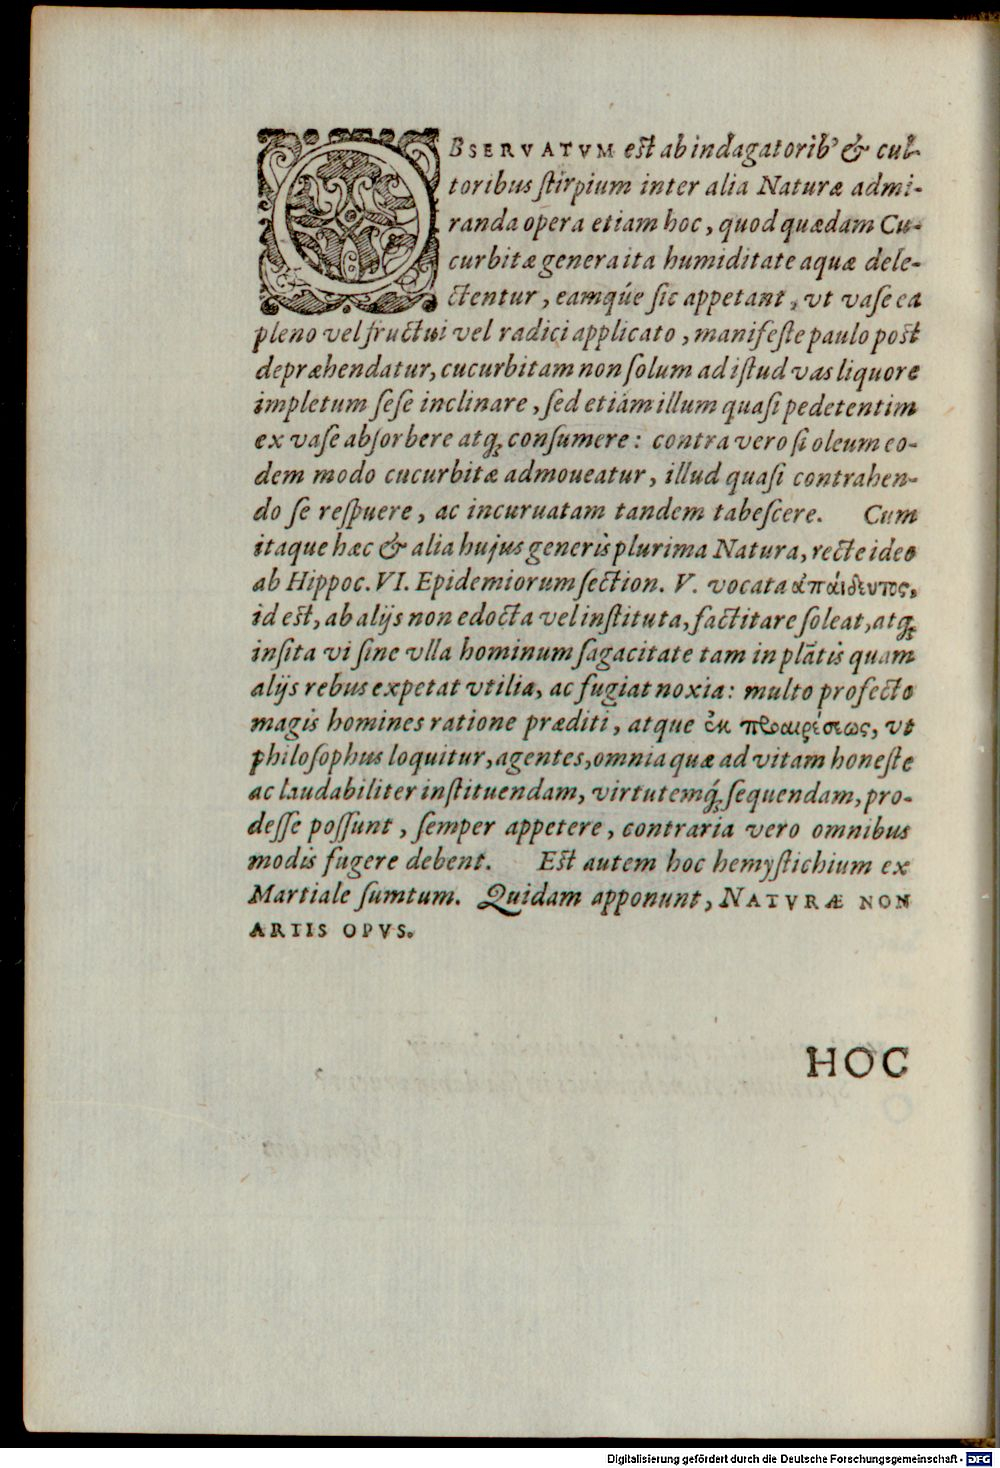 OBSERVATVM eſt ab indagatorib⁹ & cul-
toribus ſtirpium inter alia Naturæ admi-
randa opera etiam hoc, quod quædam Cu-
curbitæ genera ita humiditate aquæ dele-
ctentur, eamq́ue ſic appetant, vt vaſe ea
pleno vel fructui vel radici applicato, manifeſte paulo poſt
depræhendatur, cucurbitam non ſolum ad iſtud vas liquore
impletum ſeſe inclinare, ſed etiam illum quaſi pedetentim
ex vaſe abſorbere atq; conſumere: contra vero ſi oleum eo-
dem modo cucurbitæ admoueatur, illud quaſi contrahen-
do ſe reſpuere, ac incuruatam tandem tabeſcere. Cum
itaque hæc & alia hujus generis plurima Natura, recte ideo
ab Hippoc. VI. Epidemiorum ſection. V. vocata ἀπαίδευτος,
id eſt, ab alijs non edocta vel inſtituta, factitare ſoleat, atq;
inſita vi ſine vlla hominum ſagacitate tam in plātis quam
alijs rebus expetat vtilia, ac fugiat noxia: multo profecto
magis homines ratione præditi, atque ἐκ προαιρέσεως, vt
philoſophus loquitur, agentes, omnia quæ ad vitam honeſte
ac laudabiliter inſtituendam, virtutemq́; ſequendam, pro-
deſſe poſſunt, ſemper appetere, contraria vero omnibus
modis fugere debent. Eſt autem hoc hemyſtichium ex
Martiale ſumtum. Quidam apponunt, NATVRÆ NON
ARTIS OPVS.
HOC
Digitalisierung gefördert durch die Deutsche Forschungsgemeinschaft - DFG